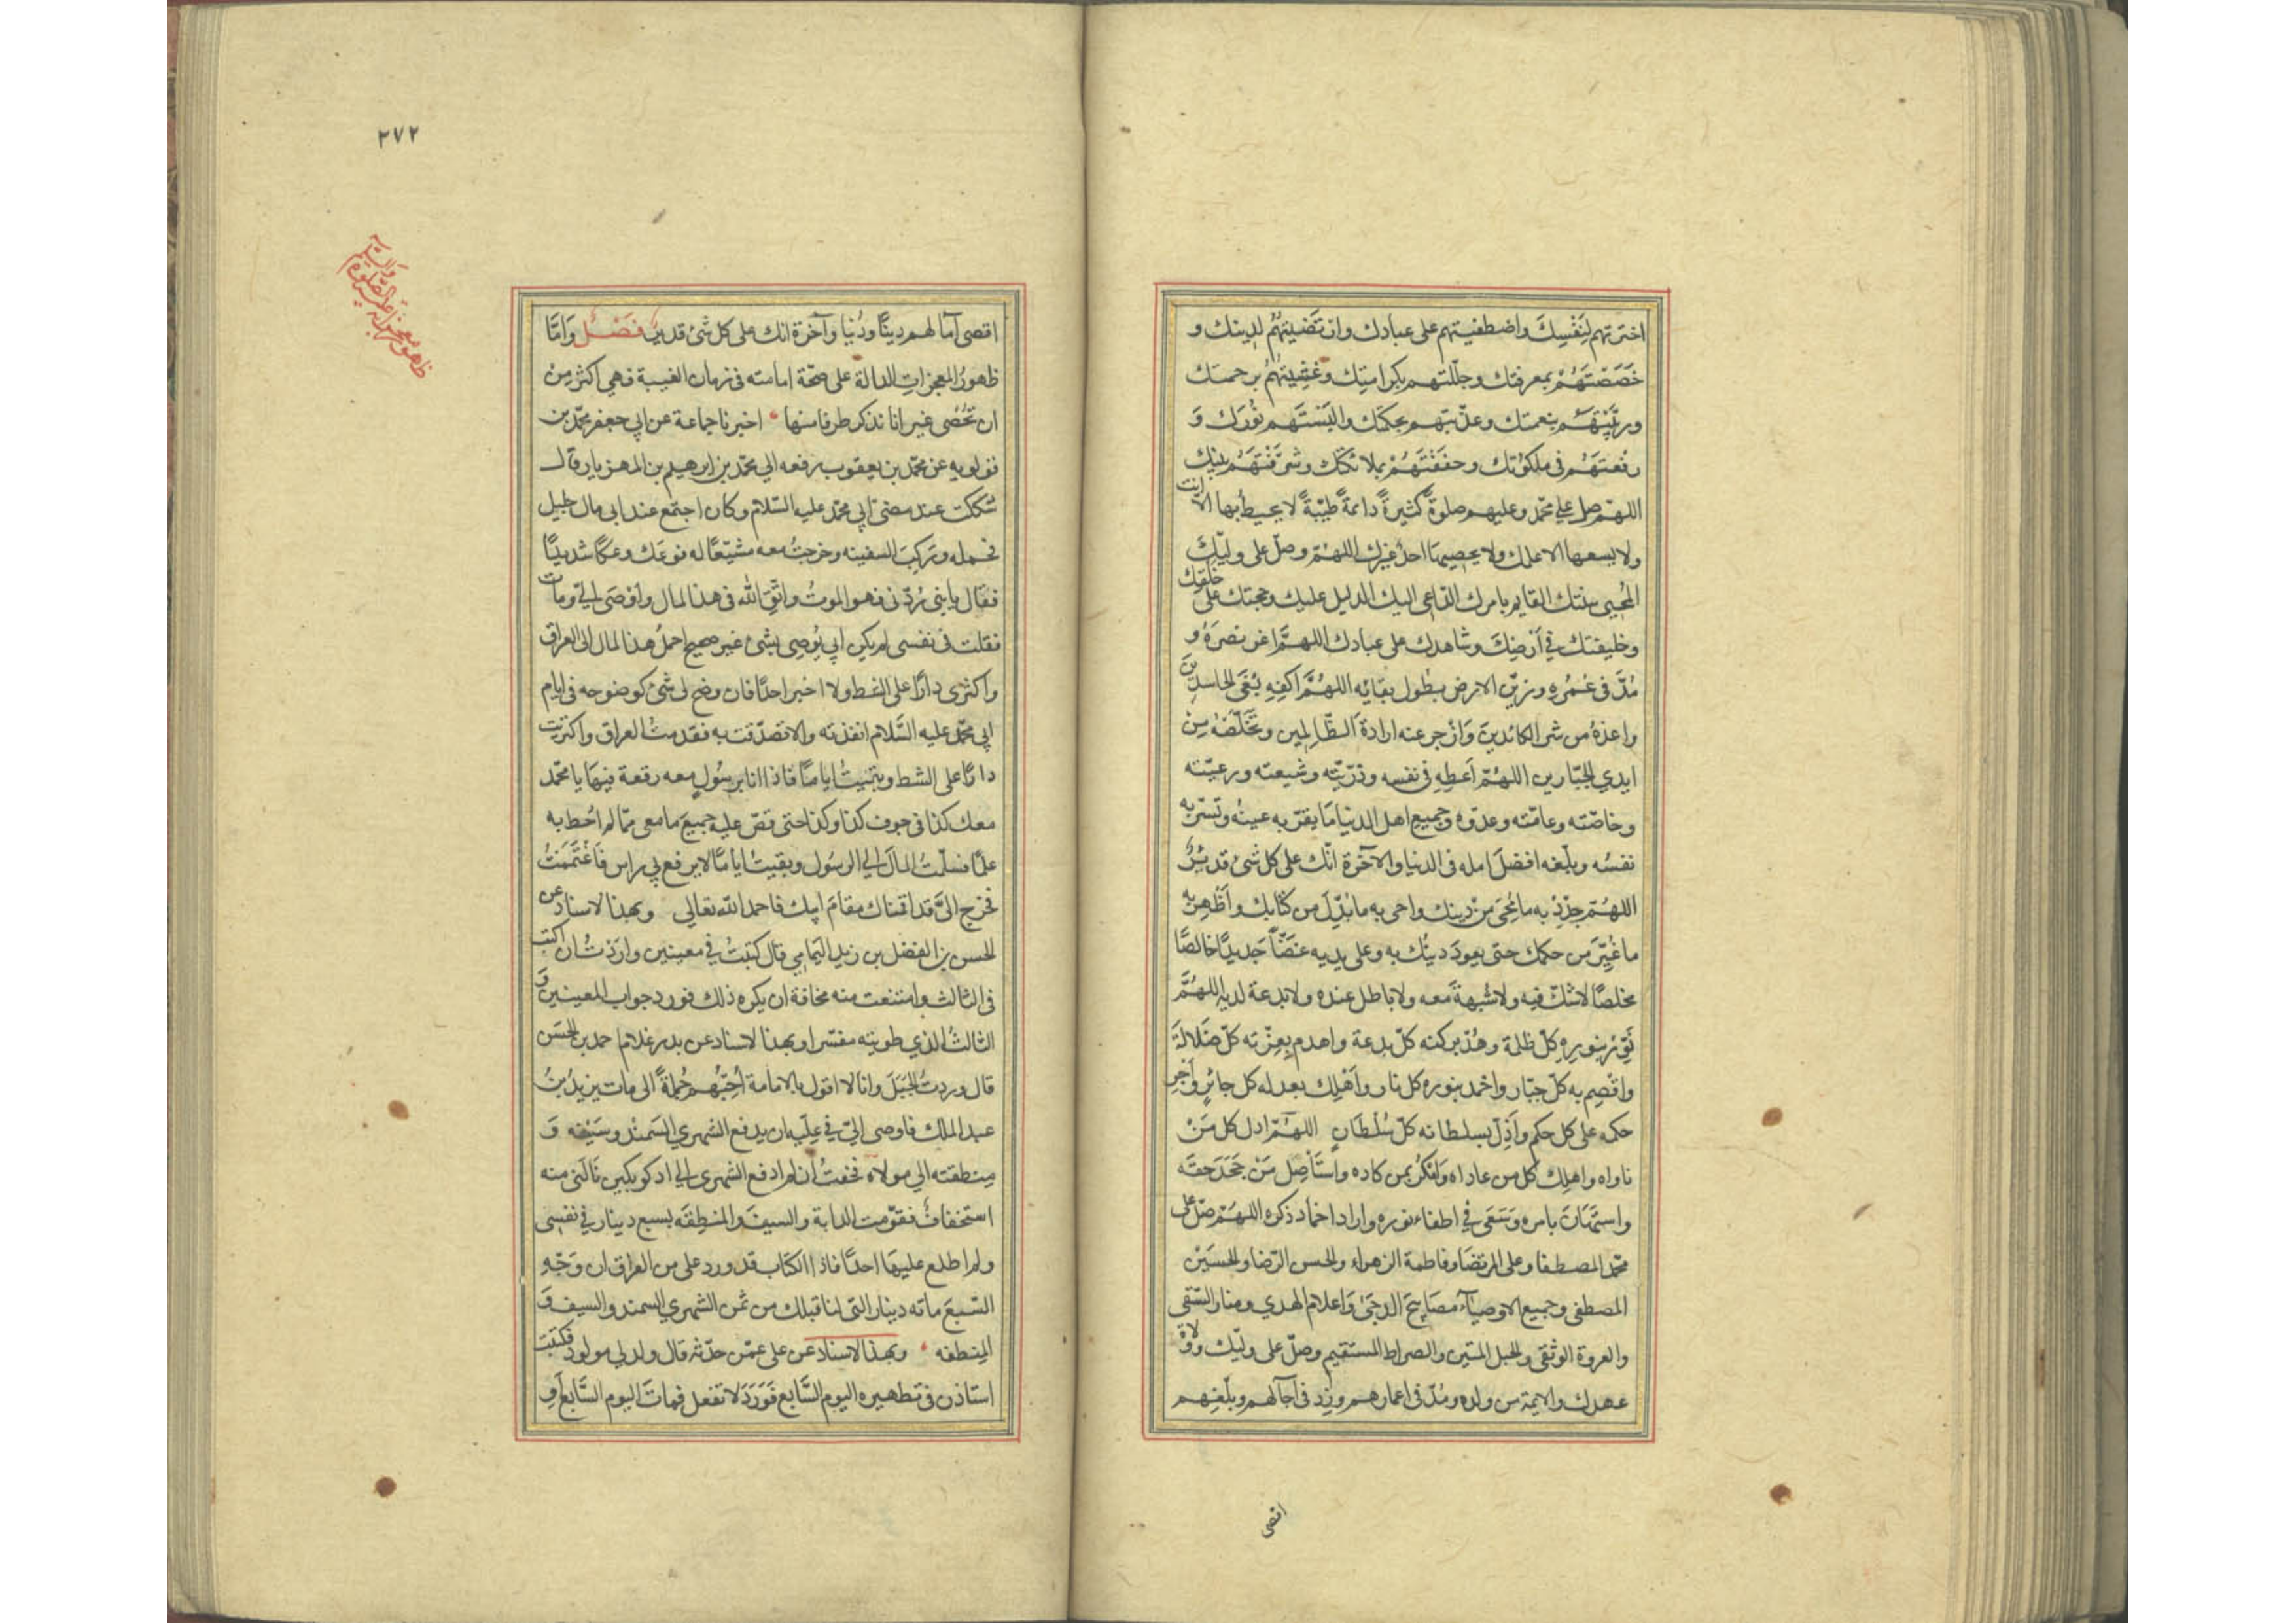 اخترتهم لِنَفْسِكَ واصطفيتهم على عبادك وارتَضَيتَهُم لدينك و
خَصَصْتَهُمْ بمعرفتك وجلّلتهم بكرامتِك وغشيتَهُم برحمتك
وربَّيْتَهُم بنعمتك وغذّيتهم بحكمتك والبَسْتَهم نُورَك وَ
رفعتَهُم فى ملكوتك وحففتَهُمْ بملائكتك وشرَّفْتَهُم بنبيك
اللهمّ صل على محمّد وعليهم صلوةً كثيرةً دائمةً طيّبةً لا يحيط بها الا انت
ولا يسعها الا علمك ولا يحصيها احدٌ غيرك اللهمّ وصلّ على وليّكَ
المُحيى سنتك القايم بامرك الدّاعى اليك الدليل عليك وحجتك على خلقك
وخليفتك في اَرْضِكَ وشاهدك على عبادك اللهمَّ اعز نصرَهُ و
مُدَّ فى عُمُرِهِ وزيّن الارض بطول بقائه اللهُمَّ اكفِهِ بُغَى الحاسدين
واعذهُ من شر الكائدينَ وَازْجر عنه ارادة الظّالِمين وتخَلّصْهُ مِن
ايدي الجبّارين اللهُمّ اَعطِهِ فى نفسه وذرّيّته وشيعته ورعيّته
وخاصّته وعامّته وعدوّه وجميع اهل الدنيا مَا يقرّ به عينُه وتَسّر به
نفسُه وبلّغه افضلَ امله فى الدنيا والآخرة انّك على كل شئ قديرٌ
اللهُمّ جدّدْ به ما مُحِىَ مِنْ دينك واحى به ما بُدِّلَ من كتابك واَظْهِر به
ما غُيِّرَ من حكمك حتى يعودَ دينُك به وعلى يديه غضّاً جَديدًا خالصًا
مخلصًا لا شكّ فيه ولا شُبهةَ معه ولا باطل عنده ولا بدعة لديه اللهُمَّ
نَوِّرْ بنورِهِ كلّ ظلمة وهُدّ بركنه كلّ بدعة واهدم بعِزّته كلّ ضَلالَة
واقْصِم به كلّ جبّار واخمد بنوره كل نار واَهْلِك بعدله كل جائرٍ وَاَجرِ
حكمه على كل حكم واَذِلّ بسلطانه كلّ سُلْطانٍ اللهُمّ اذل كل مَنْ
ناواه واهلك كل من عاداه وَامْكُرْ بمن كاده واستَأصِل مَنْ جَحَدَ حقّه
واستَهَانَ بامره وَسَعَى فى اطفاء نوره واراد اخماد ذكره اللهُمّ صلّ على
محمّد المصطفا وعلى المرتضا وفاطمة الزهراء والحسن الرّضا والحسَيْن
المصطفى وجميع الاوصيآء مصَابيحَ الدجَىٰ وَاعلام الهدي ومنار التّقى
والعروة الوثقى والحبل المتين والصراط المستقيم وصلّ على وليّك وولاة
عهدك والايمّة من ولده ومُدّ فى اعمارهم وزِد فى آجالهم وبلّغهم
اقصى
٢٧٢
اقصى آمالهم دينًا ودُنيا وآخرة انك على كل شئ قدير فَصْل وَامّا
ظهورُ المعجزاتِ الدالة على صحّة امامته فى زمان الغيبة فهي اكثر مِنْ
ان تُحْصٰى غير انا نذكر طرفا منها اخبرنا جماعة عن ابي جعفر محمّد بن
قولويه عن محمّد بن يعقوب رفعه الي محمّد بن ابرهيم بن المهزيار قال
شككت عند مضىّ ابي محمّد عليه السّلام وكان اجتمع عند ابى مال جليل
فحمله وركِبَ السفينه وخرجتُ معه مشيّعًا له فوعَك وعكًا شديدًا
فقال يا بنى رُدّنى فهو الموتُ واتّقِ اللّه فى هذا المال واَوْصَى اليّ ومات
فقلت فى نفسى لم يكن ابي يُوصِى بشئ غير صحيح احملُ هذا المال الى العراق
واكترى دارًا على الشط ولا اخبر احدًا فان وضح لى شئ كوضوحه فى ايام
ابي محمّد عليه السَّلام انفذته والا تصدّقت به فقدمتُ العراق واكتريت
دارًا على الشط وبقيتُ ايامًا فاذا انا برسُولٍ معه رقعة فيهَا يا محمّد
معك كذا فى جوف كذا وكذا حتى قصّ عليه جميعَ ما معى ممّا لم اُحط به
علمًا فسلّمتُ المالَ الي الرسُول وبقيتُ ايامًا لا يرفع بي راس فَاغْتَمَمْتُ
فخرج اليَّ قد اقمناك مقامَ ابيك فاحمد اللّه تعالي وبهذا الاسناد عن
الحسن بن الفضل بن زيد اليمامي قال كتبتُ فى معنيين واردتُ ان اكتب
فى الثالث وامتنعت منه مخافة ان يكره ذلك فورد جواب المعنيين وَ
الثالثُ الذي طويته مفسّرا وبهذا الاسناد عن بدر غلام احمد بن الحسَن
قال وردتُ الجَبَلَ وانا لا اقول بالامامة اُحِبُّهُم جُملةً الى مات يزيدُ بنُ
عبد الملك فاوصى اليّ فى علّته ان يدفع الشهري السّمند وسَيْفه وَ
مِنطقته الي مولاه فخفتُ ان لم ادفع الشهرى الي ادكوتكين نالنى منه
استخفاف فقوّمت الدابة والسيف والمنطقَه بسبع دينار في نفسى
ولم اطلع عليهَا احدًا فاذا الكتاب قد ورد على من العراق ان وَجّهِ
السّبعَ ماته دينار التى لنا قبلك من ثمن الشهري السمند والسيف وَ
المِنطقه وبهذا الاسناد عن على عمّن حدّثه قال ولد لي مولود فكتبت
استاذن فى تطهيره اليوم السَّابع فَوَرَدَ لا تفعل فماتَ اليوم السَّابع اَو